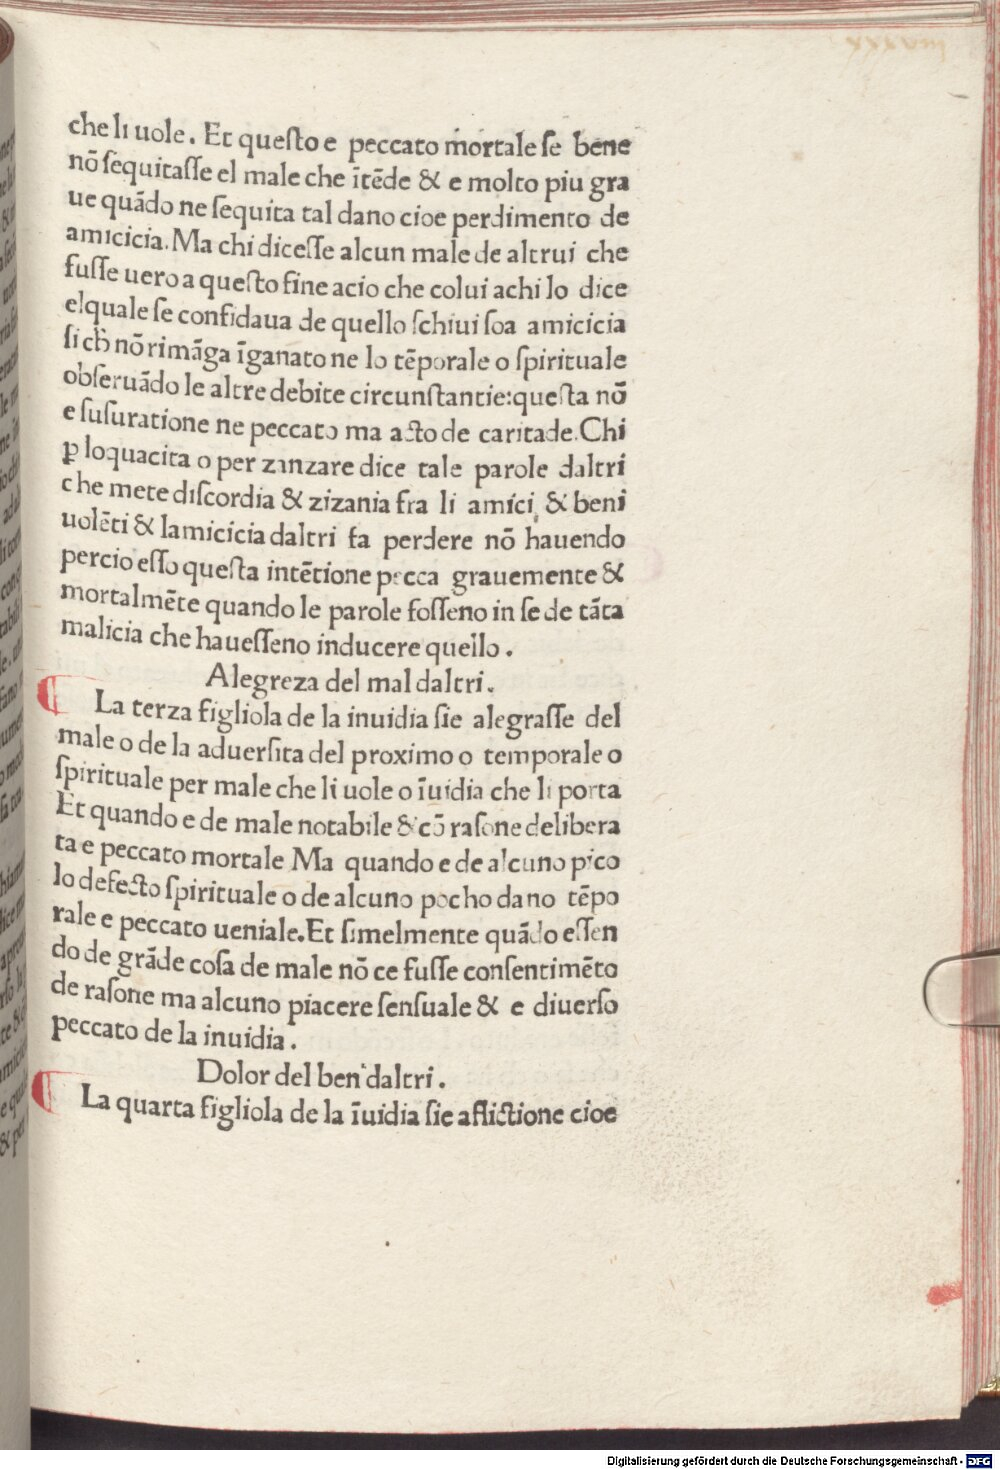 xxxviii
che li uole. Et queſto e peccato mortale ſe bene
nō ſequitaſſe el male che ītēde & e molto piu gra
ue quādo ne ſequita tal dano cioe perdimento de
amicicia. Ma chi diceſſe alcun male de altrui che
fuſſe uero a queſto fine acio che colui achi lo dice
elquale ſe confidaua de quello ſchiui ſoa amicicia
ſi ch̄ nō rimāga īganato ne lo tēporale o ſpirituale
obſeruādo le altre debite circunſtantie: queſta nō
e ſuſuratione ne peccato ma acto de caritade. Chi
ꝑ loquacita o per zanzare dice tale parole daltri
che mete diſcordia & zizania fra li amici & beni
uolēti & lamicicia daltri fa perdere nō hauendo
percio eſſo queſta intētione pecca grauemente &
mortalmēte quando le parole foſſeno in ſe de tāta
malicia che haueſſeno inducere quello.
Alegreza del mal daltri.
La terza figliola de la inuidia ſie alegraſſe del
male o de la aduerſita del proximo o temporale o
ſpirituale per male che li uole o īuidia che li porta
Et quando e de male notabile & cō raſone delibera
ta e peccato mortale Ma quando e de alcuno pico
lo defecto ſpirituale o de alcuno pocho dano tēpo
rale e peccato ueniale. Et ſimelmente quādo eſſen
do de grāde coſa de male nō ce fuſſe conſentimēto
de raſone ma alcuno piacere ſenſuale & e diuerſo
peccato de la inuidia.
Dolor del ben daltri.
La quarta figliola de la īuidia ſie aflictione cioe
Digitalisierung gefördert durch die Deutsche Forschungsgemeinschaft - DFG